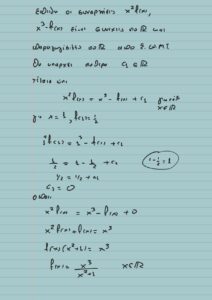 Επειδή οι συναρτήσεις x²f(x),
x³-f(x) είναι συνεχείς στο ℝ και
παραγωγίσιμες στο ℝ από Σ.Θ.Μ.Τ
θα υπάρχει σταθερά c₁ ∈ ℝ
τέτοια
x²f(x) = x³ - f(x) + c₁ για κάθε x∈ℝ
για x = 1, f(1) = 1/2
1²f(1) = 1³ - f(1) + c₁
1/2 = 1 - 1/2 + c₁
1/2 = 1/2 + c₁
c₁ = 0
x²f(x) = x³ - f(x) + 0
x²f(x) + f(x) = x³
f(x)(x²+1) = x³
f(x) = x³/(x²+1) x∈ℝ